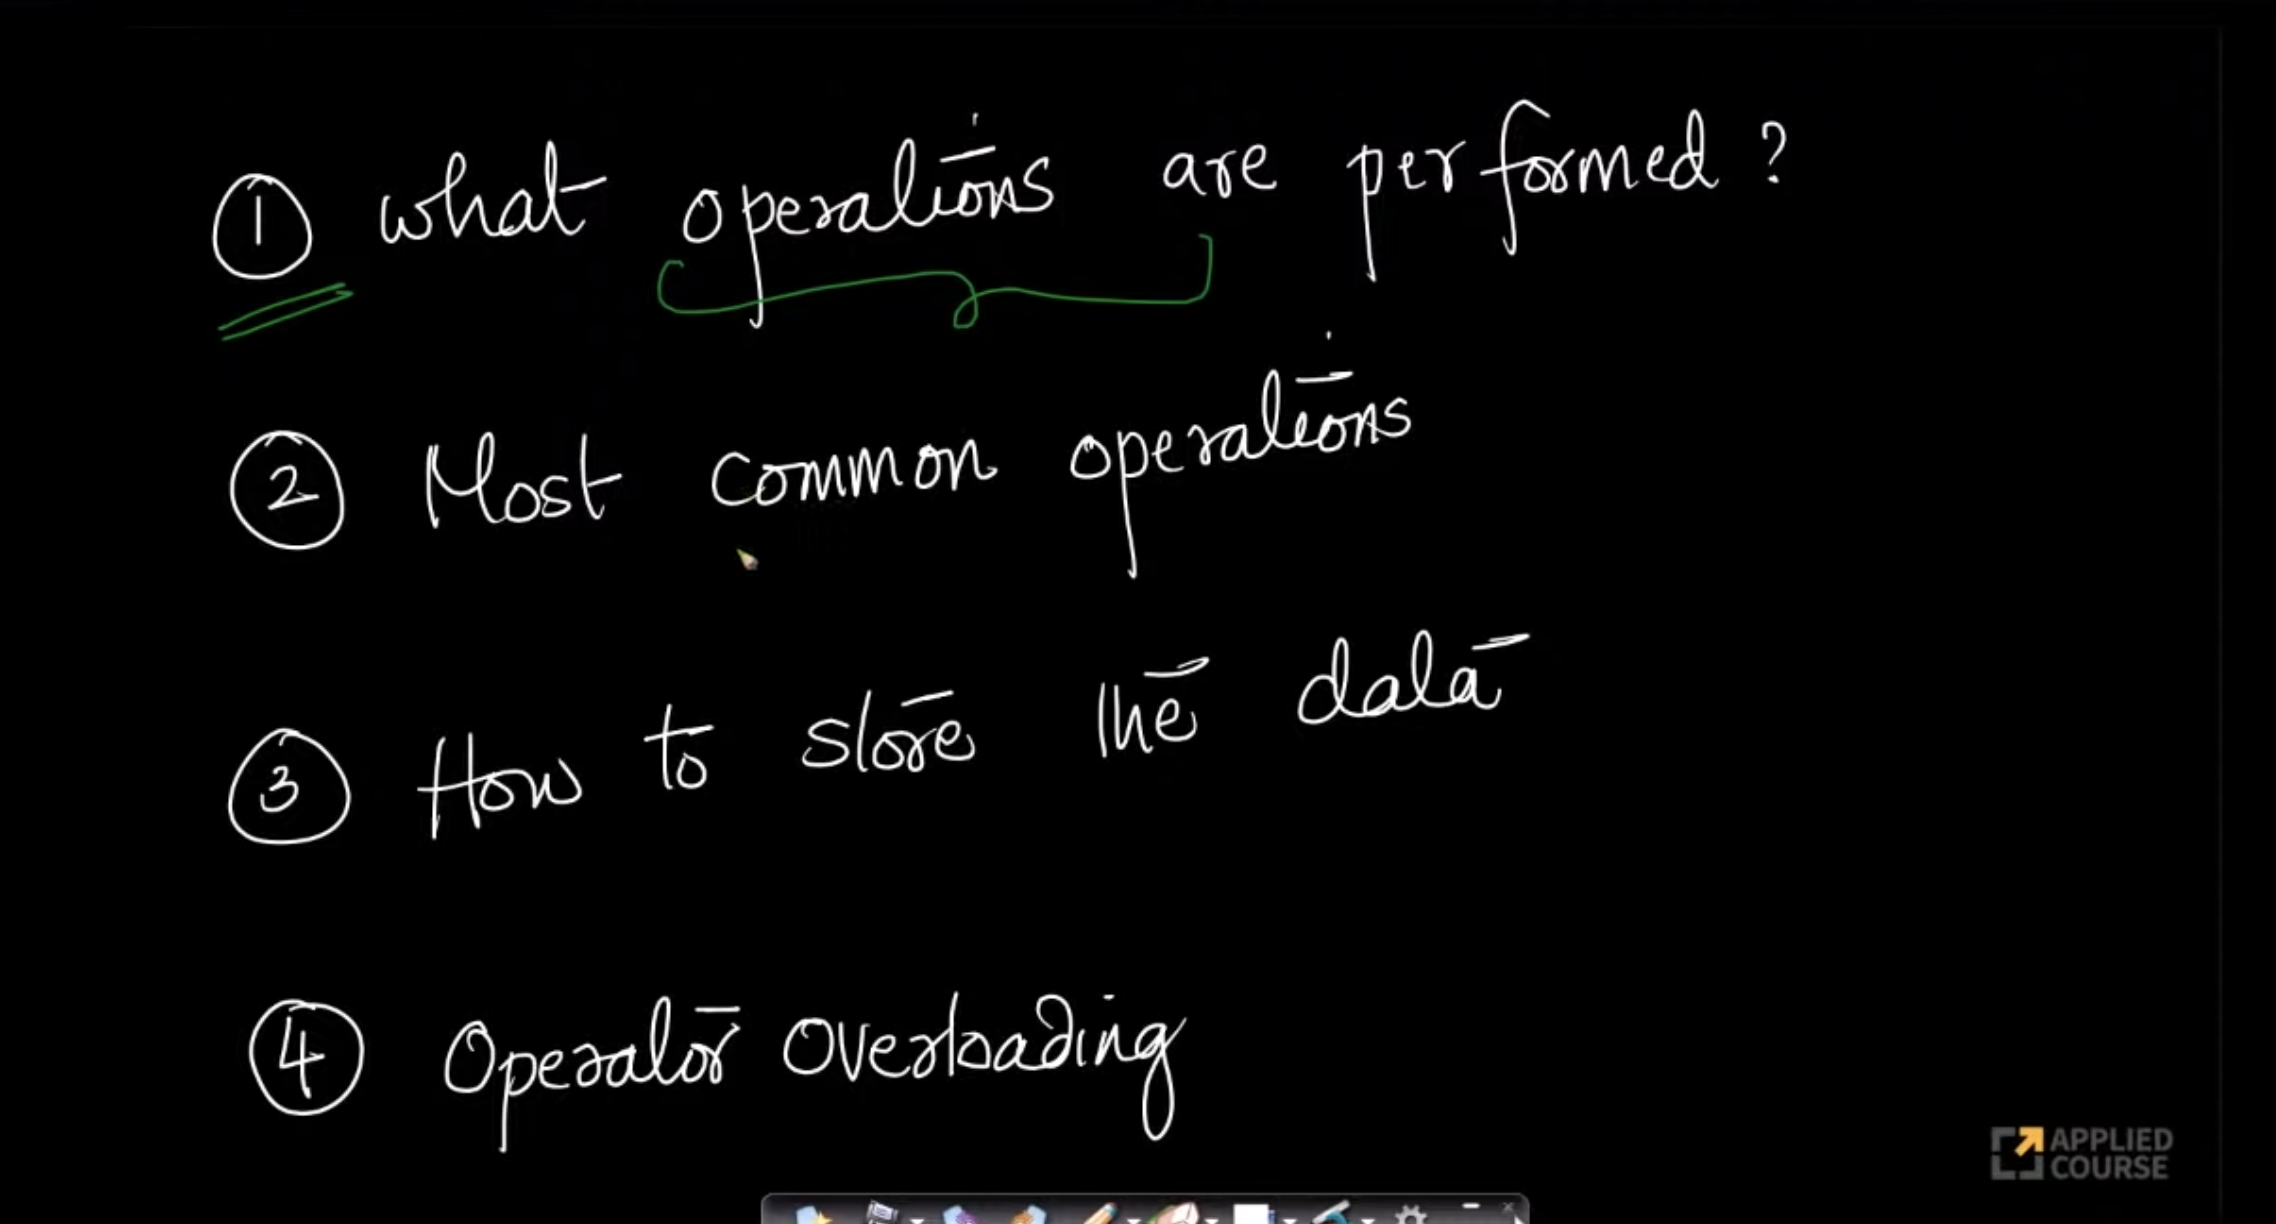 ① what operations are performed?
② Most common operations
③ How to store the data
④ Operator overloading
APPLIED
COURSE